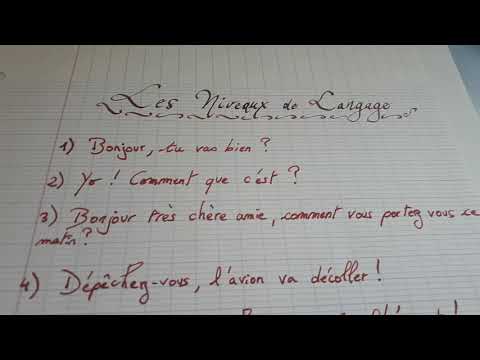 Les Niveaux de Langage
1) Bonjour, tu vas bien ?
2) Yo ! Comment que c'est ?
3) Bonjour très chère amie, comment vous portez vous ce
matin ?
4) Dépêchez-vous, l'avion va décoller !